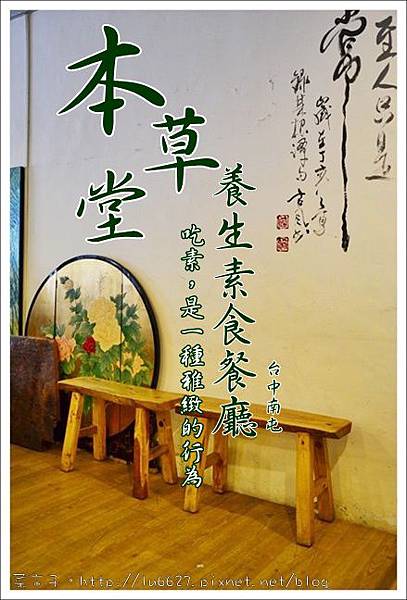 至人只是
常
錄菜根譚句
本草堂
養生素食餐廳
吃素，是一種雅緻的行為
台中南屯
http://lu6627.pixnet.net/blog